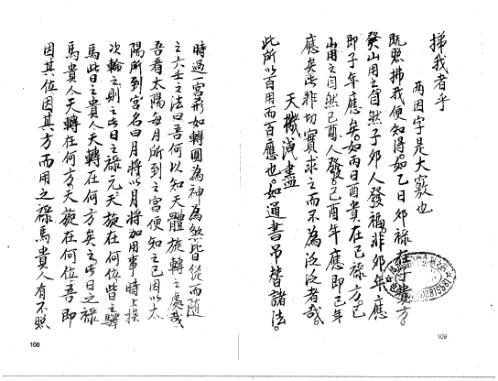 揚我者乎
兩因字是大竅也
既照揚我便知得如乙日卯祿在子貴方
癸山用之自然子卯人發福非卯年應
即子年應矣如丙日酉貴在巳祿方巳
山用之自然巳酉人發巳酉年應即巳年
應矣此非切實求之而不為泛泛者哉
天機洩盡
此所以百用而百應也如通書吊替諸法
時過一宮形如轉圜為神為煞皆從而隨
之六壬之法曰吾何以知天體旋轉之處哉
吾看太陽每月所到之宮便知之已因以太
陽所到宮名曰月將以月將加用事時上挨
次輪之則之此日之祿元天旋在何位皆之驛
馬此日之貴人天轉在何方矣之此日之祿
馬貴人天轉在何方天旋在何位吾即
因其位因其方而用之祿馬貴人有不照
109
108